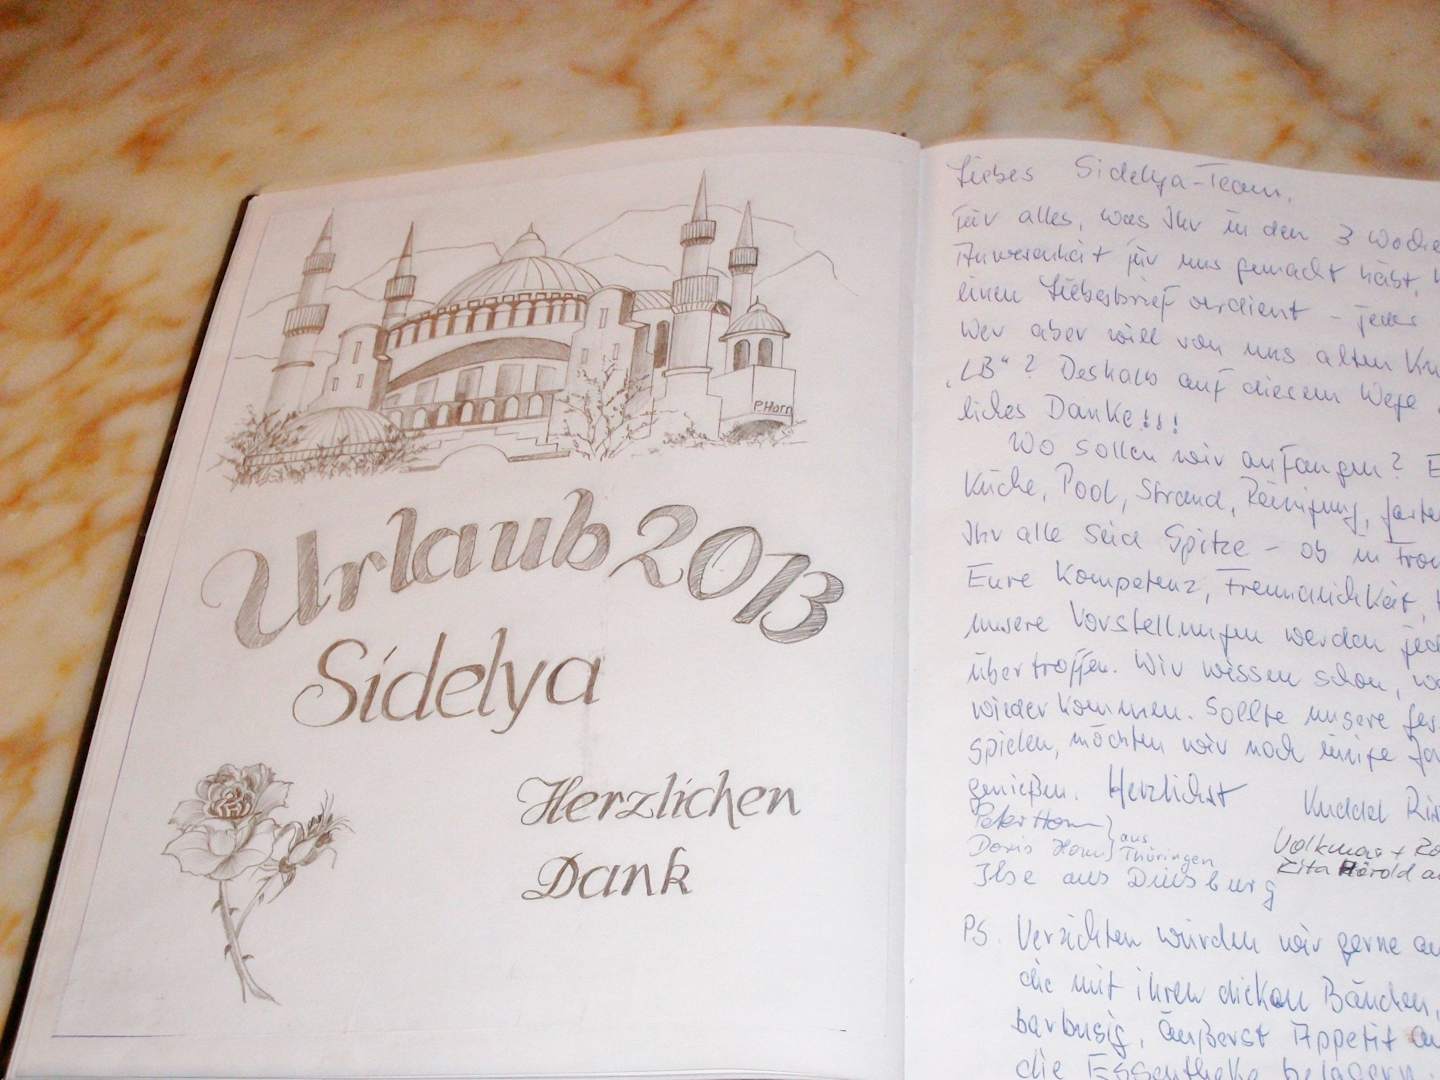 P.Horn
Urlaub 2013
Sidelya
Herzlichen
Dank
Liebes Sidelya-Team,
für alles, was Ihr in den 3 Woche
Anwesenheit für uns gemacht habt,
einen Liebesbrief verdient - jeder
Wer aber will von uns alten
"LB"? Deshalb auf diesem Wege
liches Danke!!!
Wo sollen wir anfangen?
Küche, Pool, Strand, Reinigung, Garten
Ihr alle seid Spitze - ob in Fron
Eure Kompetenz, Freundlichkeit,
unsere Vorstellungen werden jed
übertroffen. Wir wissen schon,
wieder kommen. Sollte unsere Ges
spielen, möchten wir noch einige Ja
genießen. Herzlichst Kuddel
Peter Horn
Doris Horn
aus
Thüringen
Volkmar +
Rita Harold
Ilse aus Duisburg
PS. Verzichten würden wir gerne
die mit ihren dicken Bäuchen,
barbusig, äußerst Appetit
die Essentheke belagern.